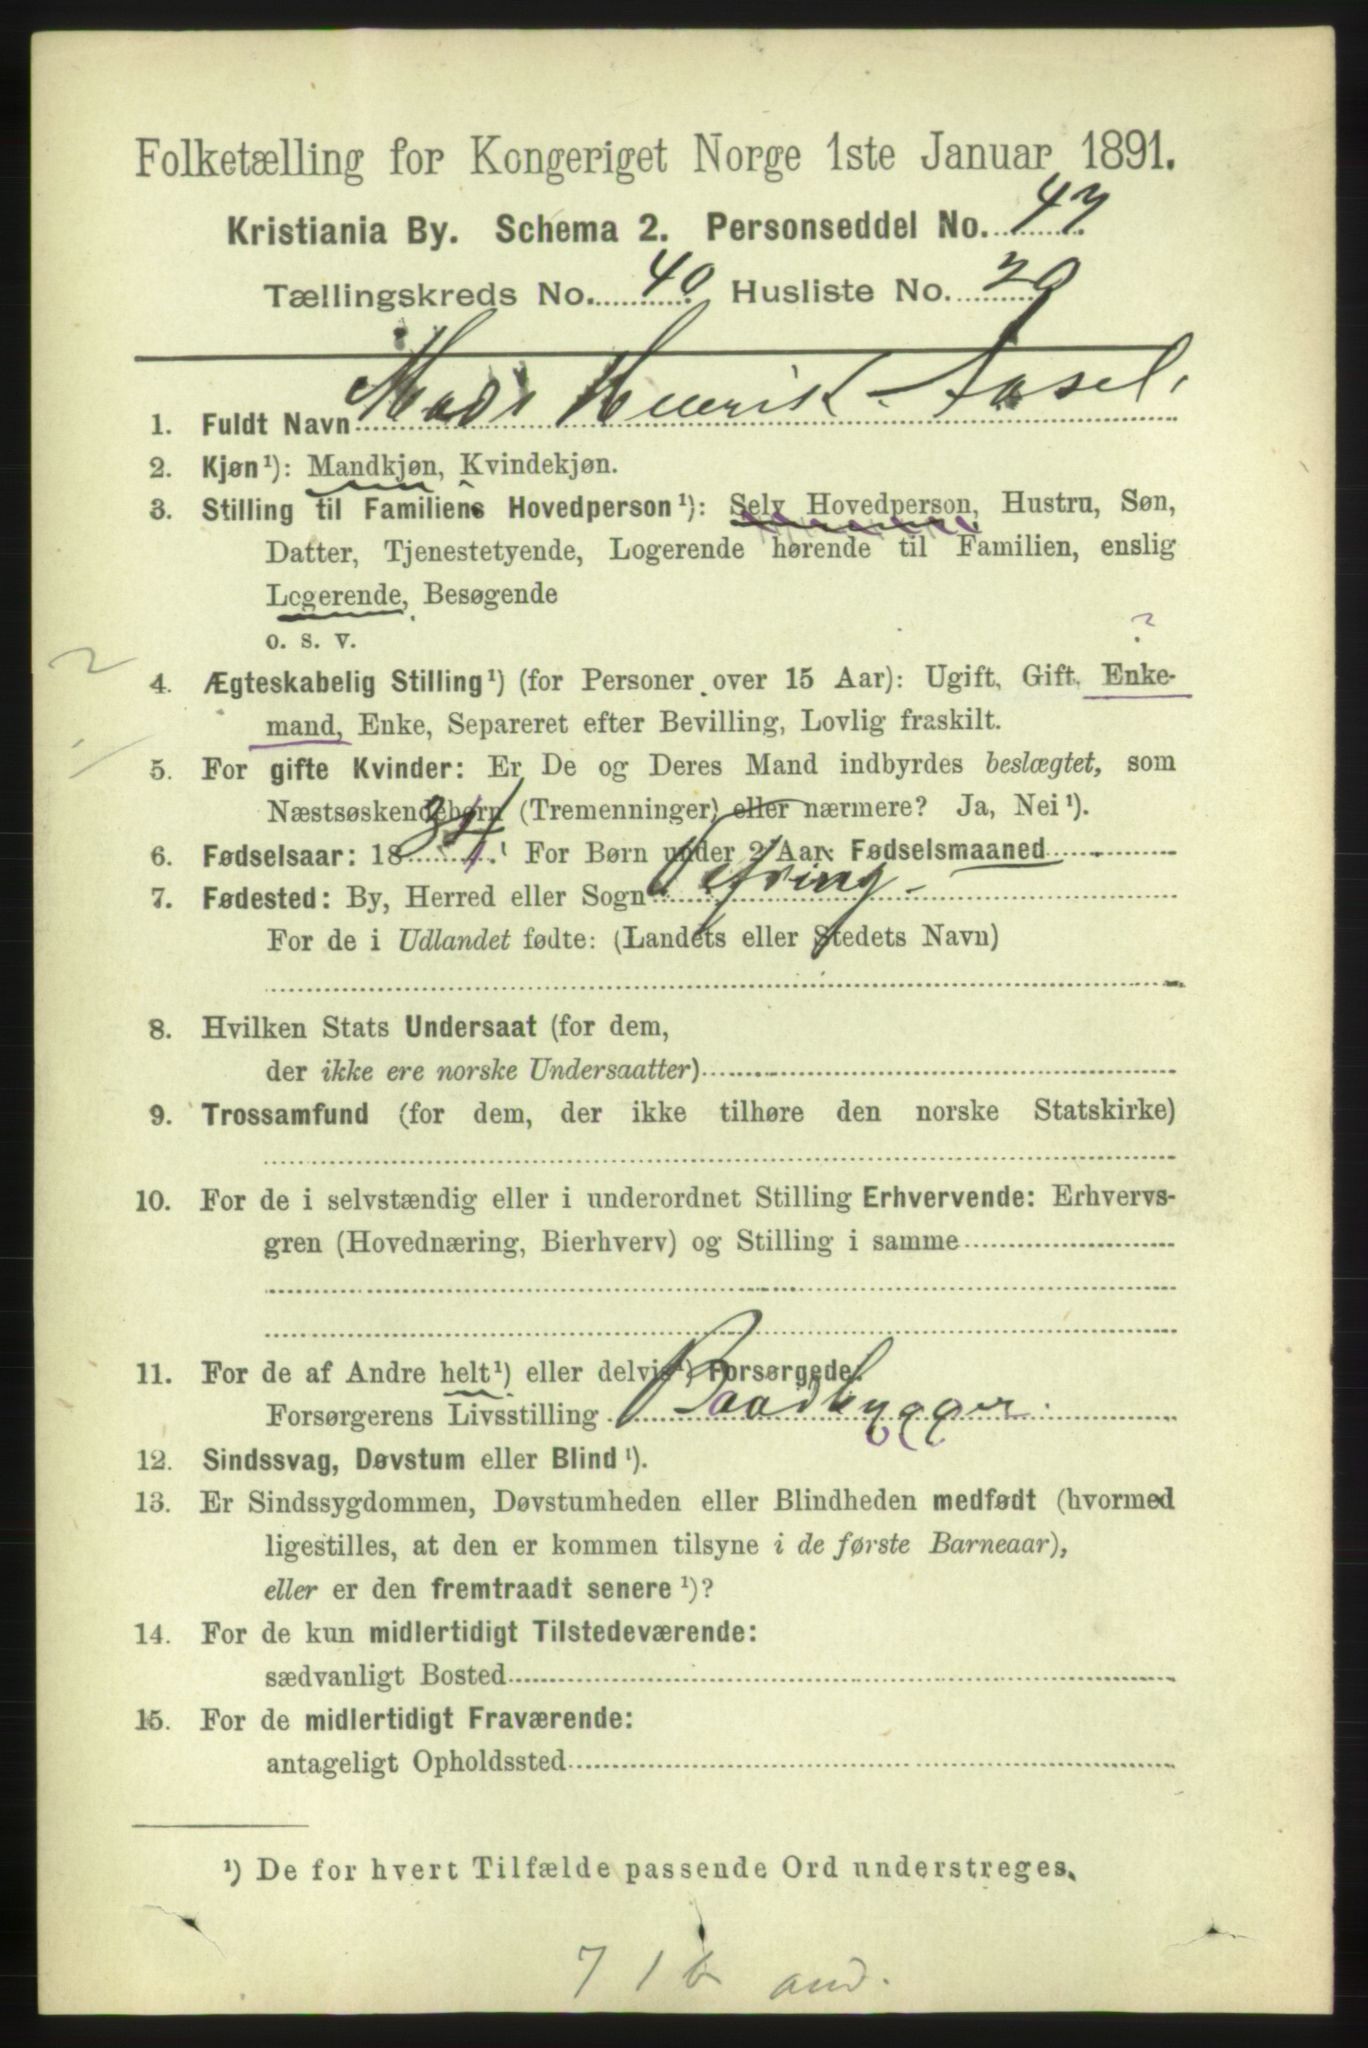 Folketælling for Kongeriget Norge 1ste Januar 1891.
Kristiania By. Schema 2. Personseddel No. 47
Tællingskreds No. 40 Husliste No. 29
1. Fuldt Navn Mads Henrik Aasel.
2. Kjøn¹): Mandkjøn, Kvindekjøn.
3. Stilling til Familiens Hovedperson¹): Selv Hovedperson, Hustru, Søn,
Datter, Tjenestetyende, Logerende hørende til Familien, enslig
Logerende, Besøgende
o. s. v.
?
2
4. Ægteskabelig Stilling¹) (for Personer over 15 Aar): Ugift, Gift, Enke-
mand, Enke, Separeret efter Bevilling, Lovlig fraskilt.
5. For gifte Kvinder: Er De og Deres Mand indbyrdes beslægtet, som
Næstsøskendebørn (Tremenninger) eller nærmere? Ja, Nei¹).
6. Fødselsaar: 1834. For Børn under 2 Aar: Fødselsmaaned
7. Fødested: By, Herred eller Sogn
For de i Udlandet fødte: (Landets eller Stedets Navn)
8. Hvilken Stats Undersaat (for dem,
der ikke ere norske Undersaatter)
9. Trossamfund (for dem, der ikke tilhøre den norske Statskirke)
10. For de i selvstændig eller i underordnet Stilling Erhvervende: Erhvervs-
gren (Hovednæring, Bierhverv) og Stilling i samme
11. For de af Andre helt¹) eller delvis¹) Forsørgede:
Forsørgerens Livsstilling Baadbygger.
12. Sindssvag, Døvstum eller Blind¹).
13. Er Sindssygdommen, Døvstumheden eller Blindheden medfødt (hvormed
ligestilles, at den er kommen tilsyne i de første Barneaar),
eller er den fremtraadt senere¹)?
14. For de kun midlertidigt Tilstedeværende:
sædvanligt Bosted
15. For de midlertidigt Fraværende:
antageligt Opholdssted
¹) De for hvert Tilfælde passende Ord understreges.
71b and.